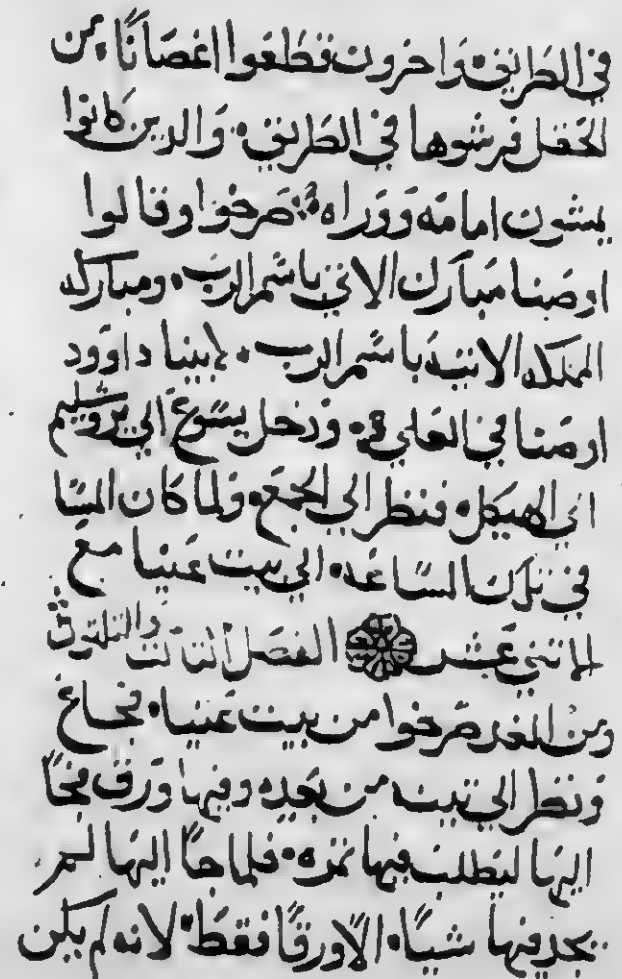 في الطريق. واخرون قطعوا اغصانًا من
الحقل فرشوها في الطريق. والدين كانوا
يمشون امامه ووراه صرخوا وقالوا
اوصنا مبارك الاتي باسم الرب. ومباركه
المملكه الاتيه باسم الرب. لابينا داوود
اوصنا في العلي. ودخل يسوع الي يروشليم
الي الهيكل. فنظر الي الجمع. ولما كان المسا
في تلك الساعه. الي بيت عنيا مع
الاتني عشر الفصل التالت والتلتون
ومن الغد خرجوا من بيت عنيا. فجاع
ونظر الي تينه من بعيد وفيها ورق فجا
اليها ليطلب فيها تمره. فلما جا اليها لم
يجد فيها شيًا. الا ورقًا فقط. لانه لم يكن